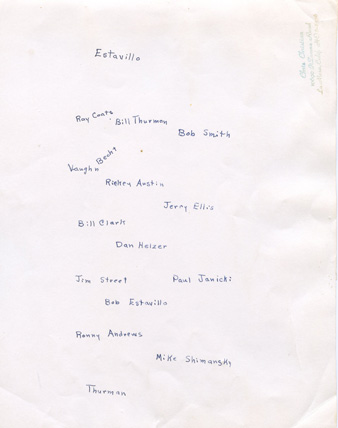 Estavillo
Ray Coats
Bill Thurman
Bob Smith
Vaughn Becht
Austin
Jerry Ellis
Bill Clark
Dan Helzer
Jim Street
Paul Janicki
Bob Estavillo
Ronny Andrews
Mike Shimansky
Thurman